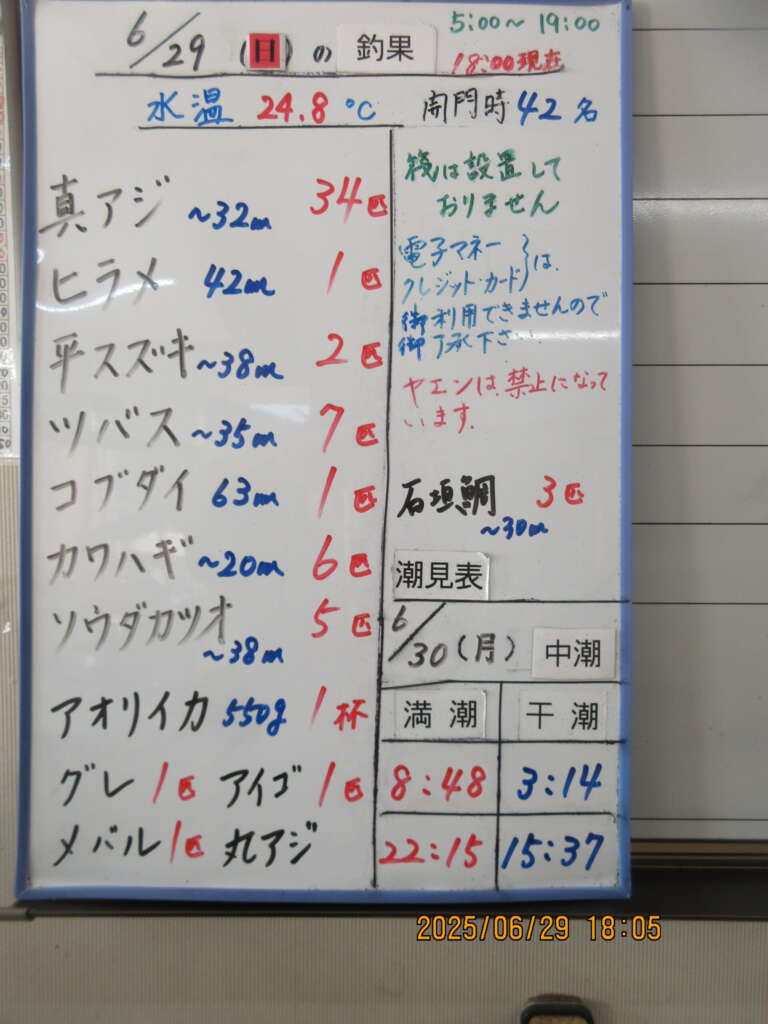 6/29 (日) の 釣果
5:00～19:00
18:00現在
水温 24.8 ℃
開門時 42名
真アジ ～32cm 34匹
ヒラメ 42cm 1匹
平スズキ ～38cm 2匹
ツバス ～35cm 7匹
コブダイ 63cm 1匹
カワハギ ～20cm 6匹
ソウダカツオ 5匹
～38cm
アオリイカ 550g 1杯
グレ 1匹 アイゴ 1匹
メバル 1匹 丸アジ
筏は設置して
おりません
電子マネー
クレジット・カード は
御利用できませんので
御了承下さい.
ヤエンは、禁止になって
います.
石垣鯛 3匹
～30cm
潮見表
6/30 (月) 中潮
満潮 干潮
8:48 3:14
22:15 15:37
2025/06/29 18:05